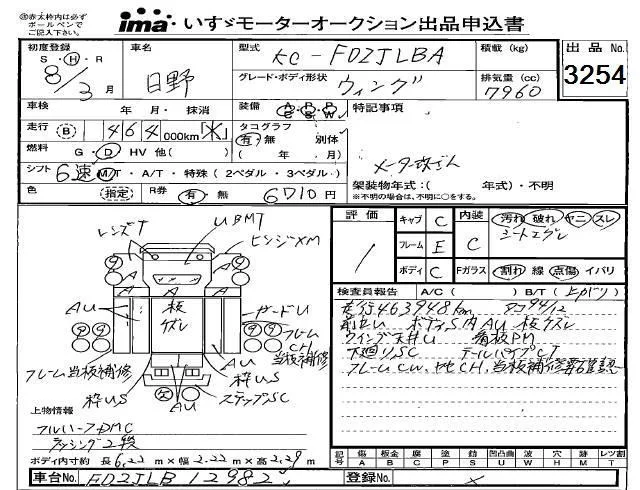 ※赤太枠内は必ず
ボールペンで
ご記入下さい。
ima いすゞモーターオークション出品申込書
初度登録 S・H・R 8/3月
車名 日野
型式 KC-FD2JLBA
積載 (kg)
出品No. 3254
グレード・ボディ形状 ウィング
排気量 (cc) 7960
車検 年・月・抹消
装備 A/C P/S P/W
特記事項
走行 B 464,000km
タコグラフ 有・無 別体
( 年 月)
メーター改ざん
燃料 G・D HV 他( )
シフト 6速 M/T・A/T・特殊(2ペダル・3ペダル)
架装物年式:( 年式)・不明
※不明の場合は、不明に〇をする。
色 指定 R券 有・無 6710円
評価 1
キャブ C 内装 C 汚れ 破れ ヤニ スレ
フレーム E シートコゲ
ボディ C Fガラス 割れ 線 点傷 イバリ
検査員報告 A/C( ) B/T(上がり)
走行463948km タコ94/12
ボディS月AU 板ズレ
ウイング天井U 看板PM
下廻りSC テールパイプCT
フレームCW、地CH、当板補修
レンズT
UBMT
ヒンジXM
A A A
AU
板ズレ
ガードU
フレームCH
当板補修
AU
枠US
フレーム当板補修
枠US
AU
ステップSC
上物情報
フルハーフDMC
ラッシング2段
ボディ内寸約 長6.22m×幅2.22m×高2.29m
記号 傷A 板金B 腐C 塗P 錆S 凹凸曲U 波W 穴H 欠M ズレZ レツ割T
車台No. FD2JLB 12982
登録No. ×